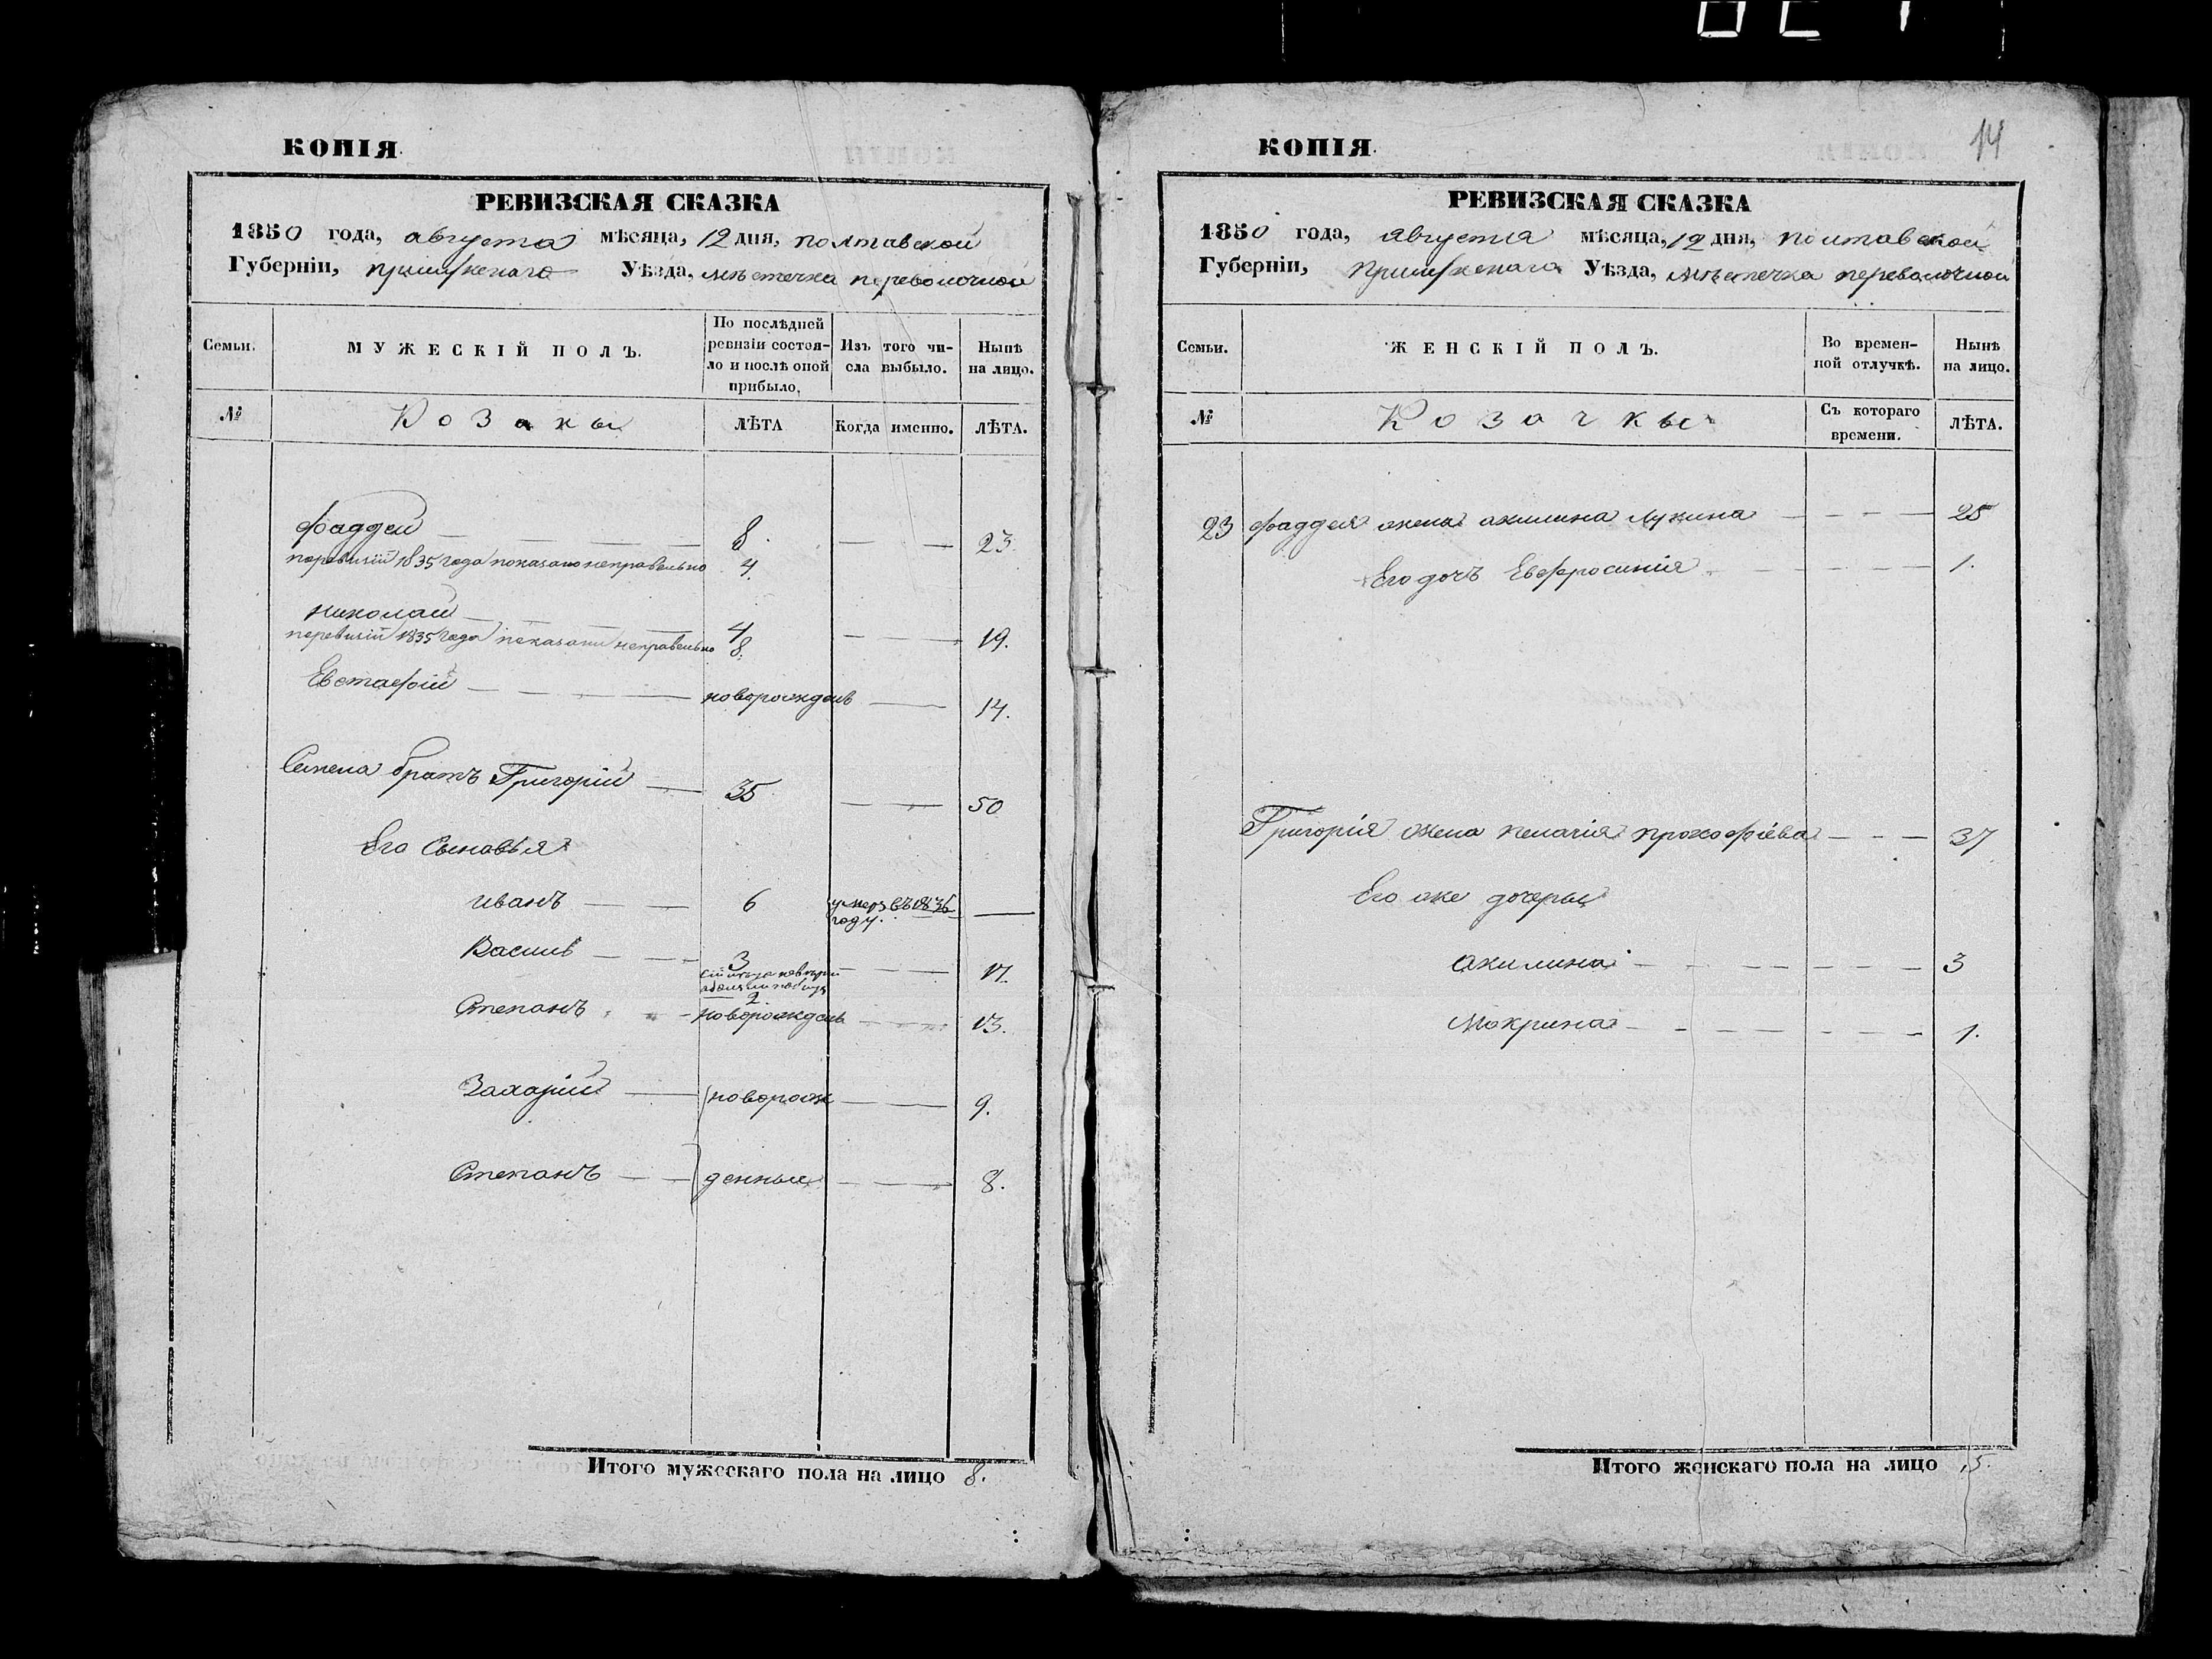 КОПІЯ.
РЕВИЗСКАЯ СКАЗКА
1850 года, августа мѣсяца, 12 дня, полтавской
Губерніи, прилуженаго Уѣзда, мѣстечка переволочной
Семьи. МУЖЕСКІЙ ПОЛЪ. По послѣдней ревизіи состоя- Изъ того чи- Нынѣ
ло и послѣ оной сла выбыло. на лицо.
прибыло.
№ Козаки ЛѢТА Когда именно. ЛѢТА.
Фаддей — 8. — 23.
поревизій 1835 года показано неправельно 4.
Николай — 4 — 19.
поревизій 1835 года показани неправельно 8.
Евстафій — новорожденъ — 14.
Семена братъ Григорій — 35 — 50
Его Сыновья
Иванъ — 6 умеръ въ 1836 —
году.
Василь — 3 — 17.
2.
Степанъ — новорожденъ — 13.
Захарій — новорож — 9.
Степанъ — денные — 8.
Итого мужескаго пола на лицо 8.
КОПІЯ. 14
РЕВИЗСКАЯ СКАЗКА
1850 года, августа мѣсяца, 12 дня, полтавской
Губерніи, прилуженаго Уѣзда, мѣстечка переволочной
Семьи. ЖЕНСКІЙ ПОЛЪ. Во времен- Нынѣ
ной отлучкѣ. на лицо.
№ Козачкы Съ котораго ЛѢТА.
времени.
23 Фаддея жена акилина Лукина — 25
Его дочъ Евфросинія — 1.
Григорія жена пелагія прокофіева — 37
Его же дочеры
Акилина — 3
Мокрина — 1.
Итого женскаго пола на лицо 5.